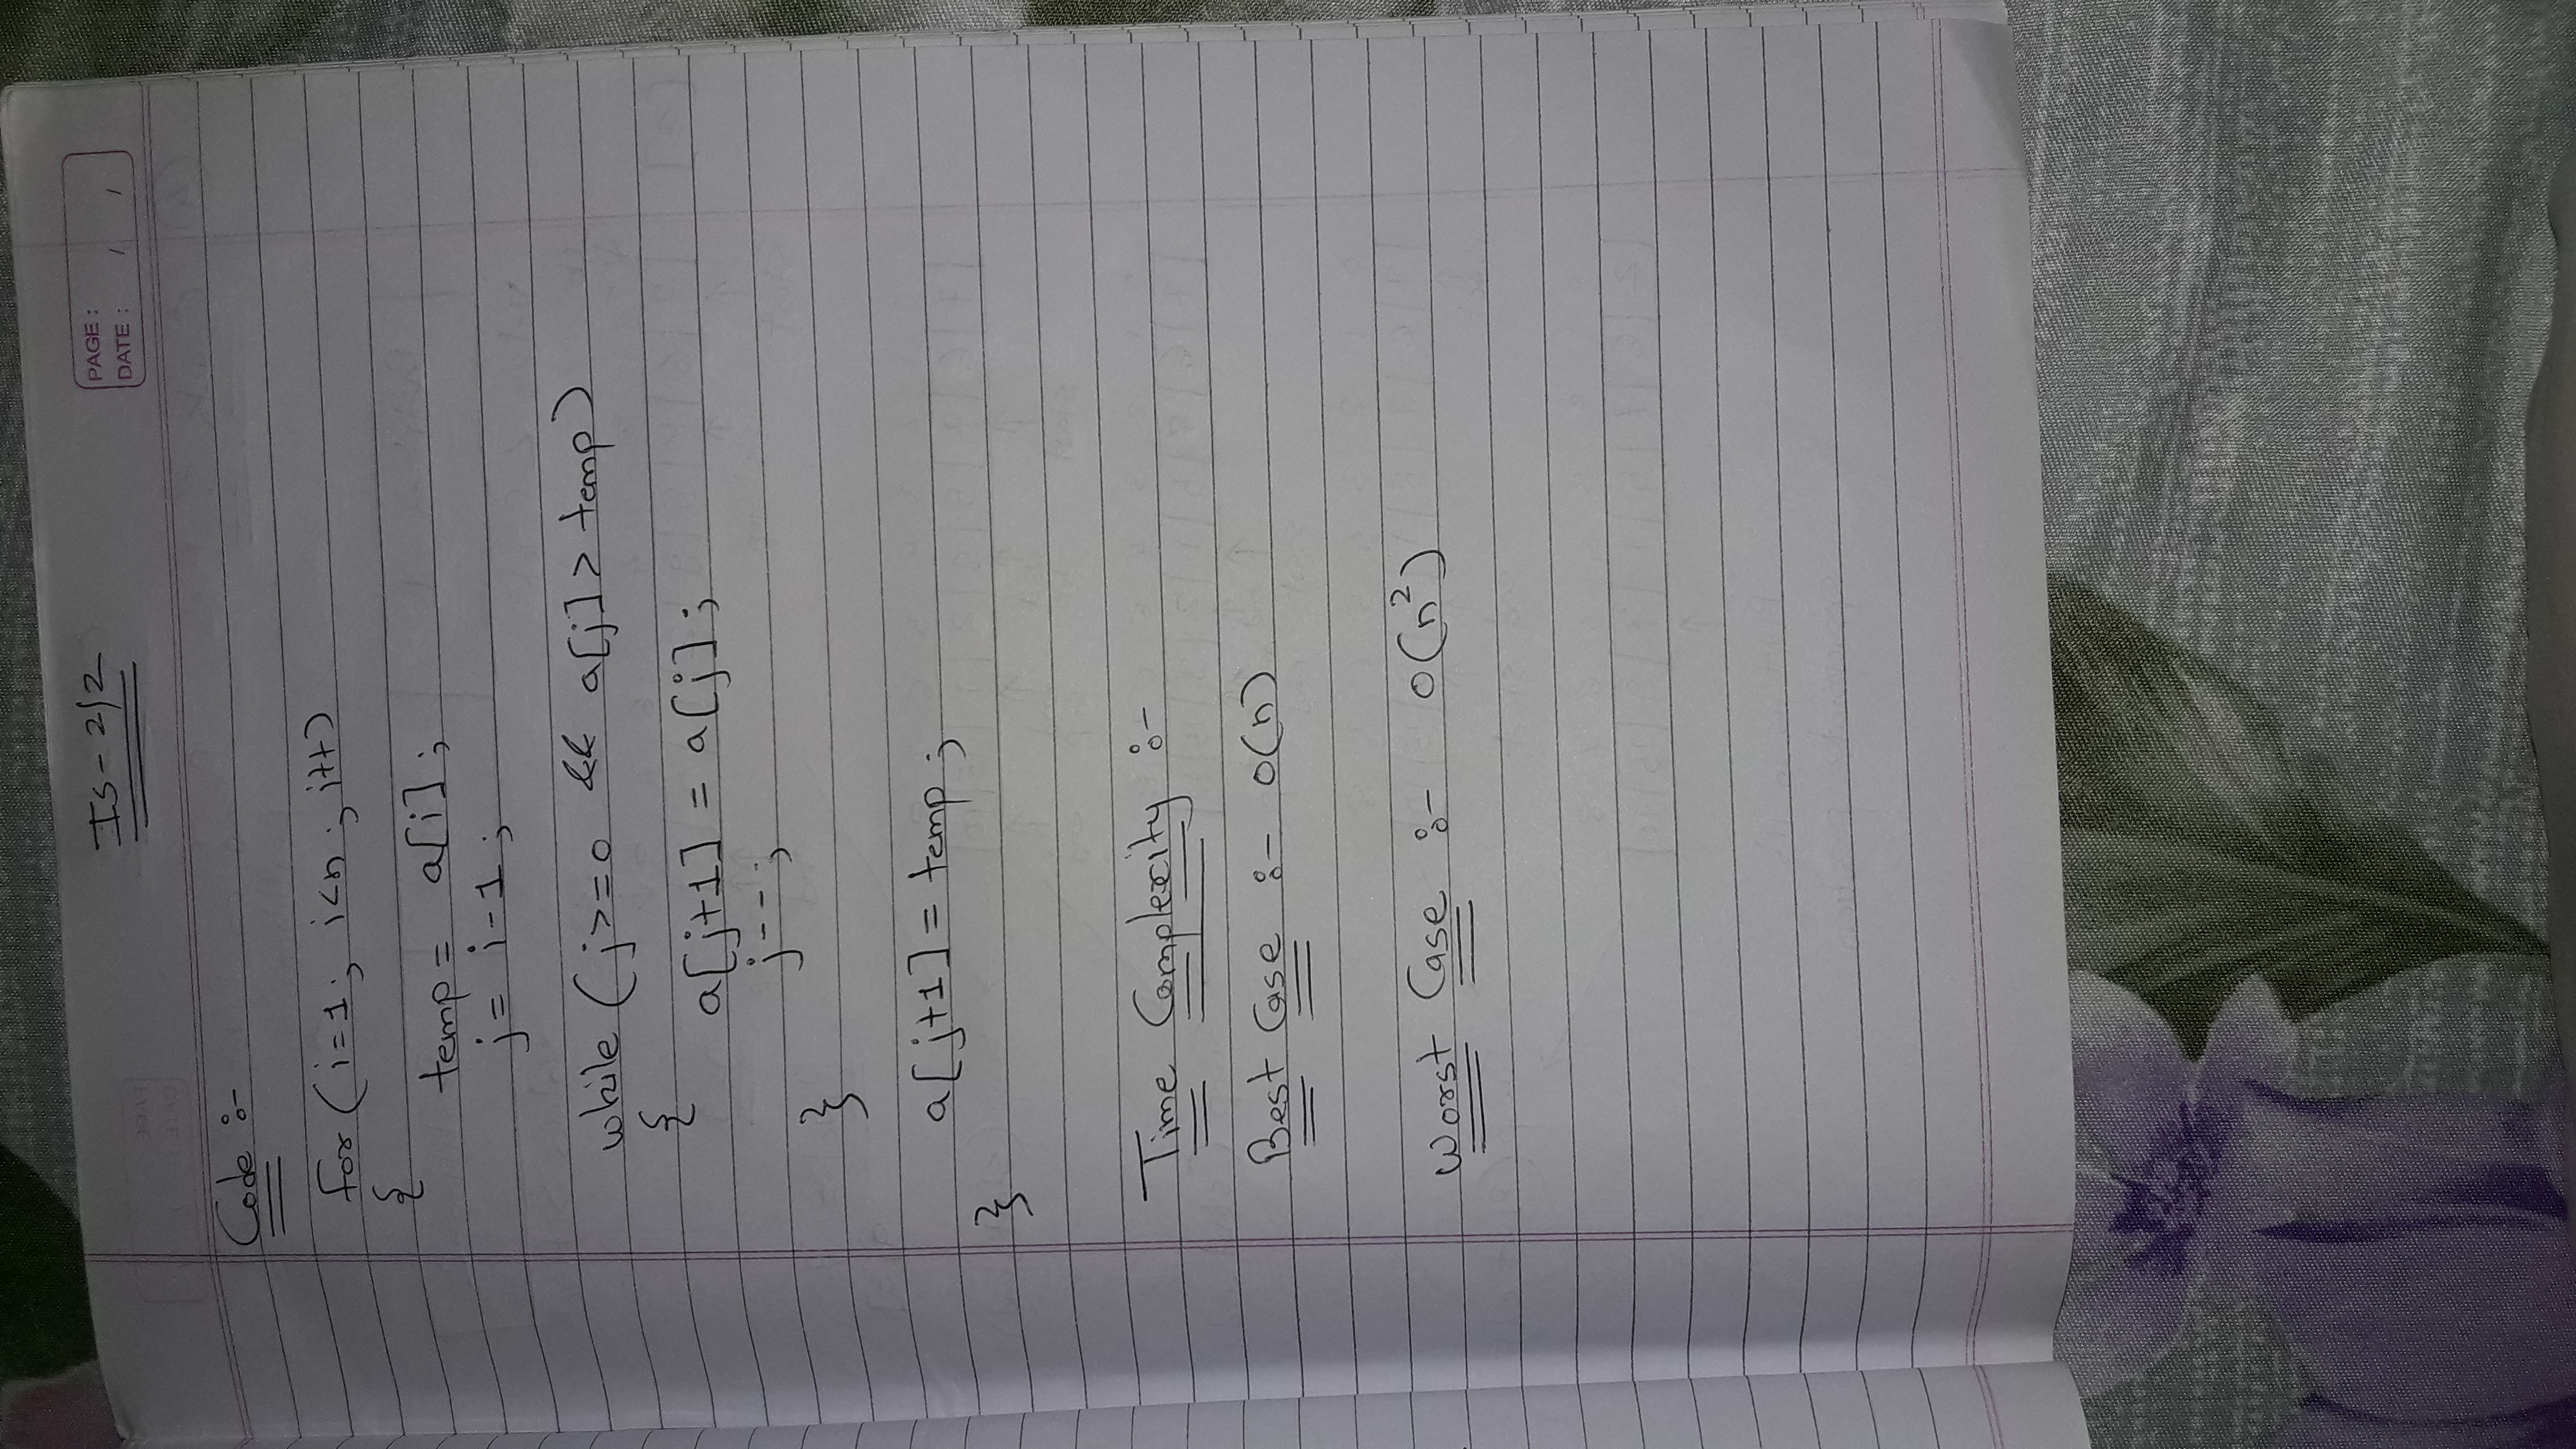 IS - 2/2
PAGE :
DATE : / /
Code :-
for ( i = 1 ; i < n ; i++ )
{
temp = a[i] ;
j = i - 1 ;
while ( j >= 0 && a[j] > temp )
{
a[j+1] = a[j] ;
j-- ;
}
a[j+1] = temp ;
}
Time Complexity :-
Best Case :- O(n)
Worst Case :- O(n²)